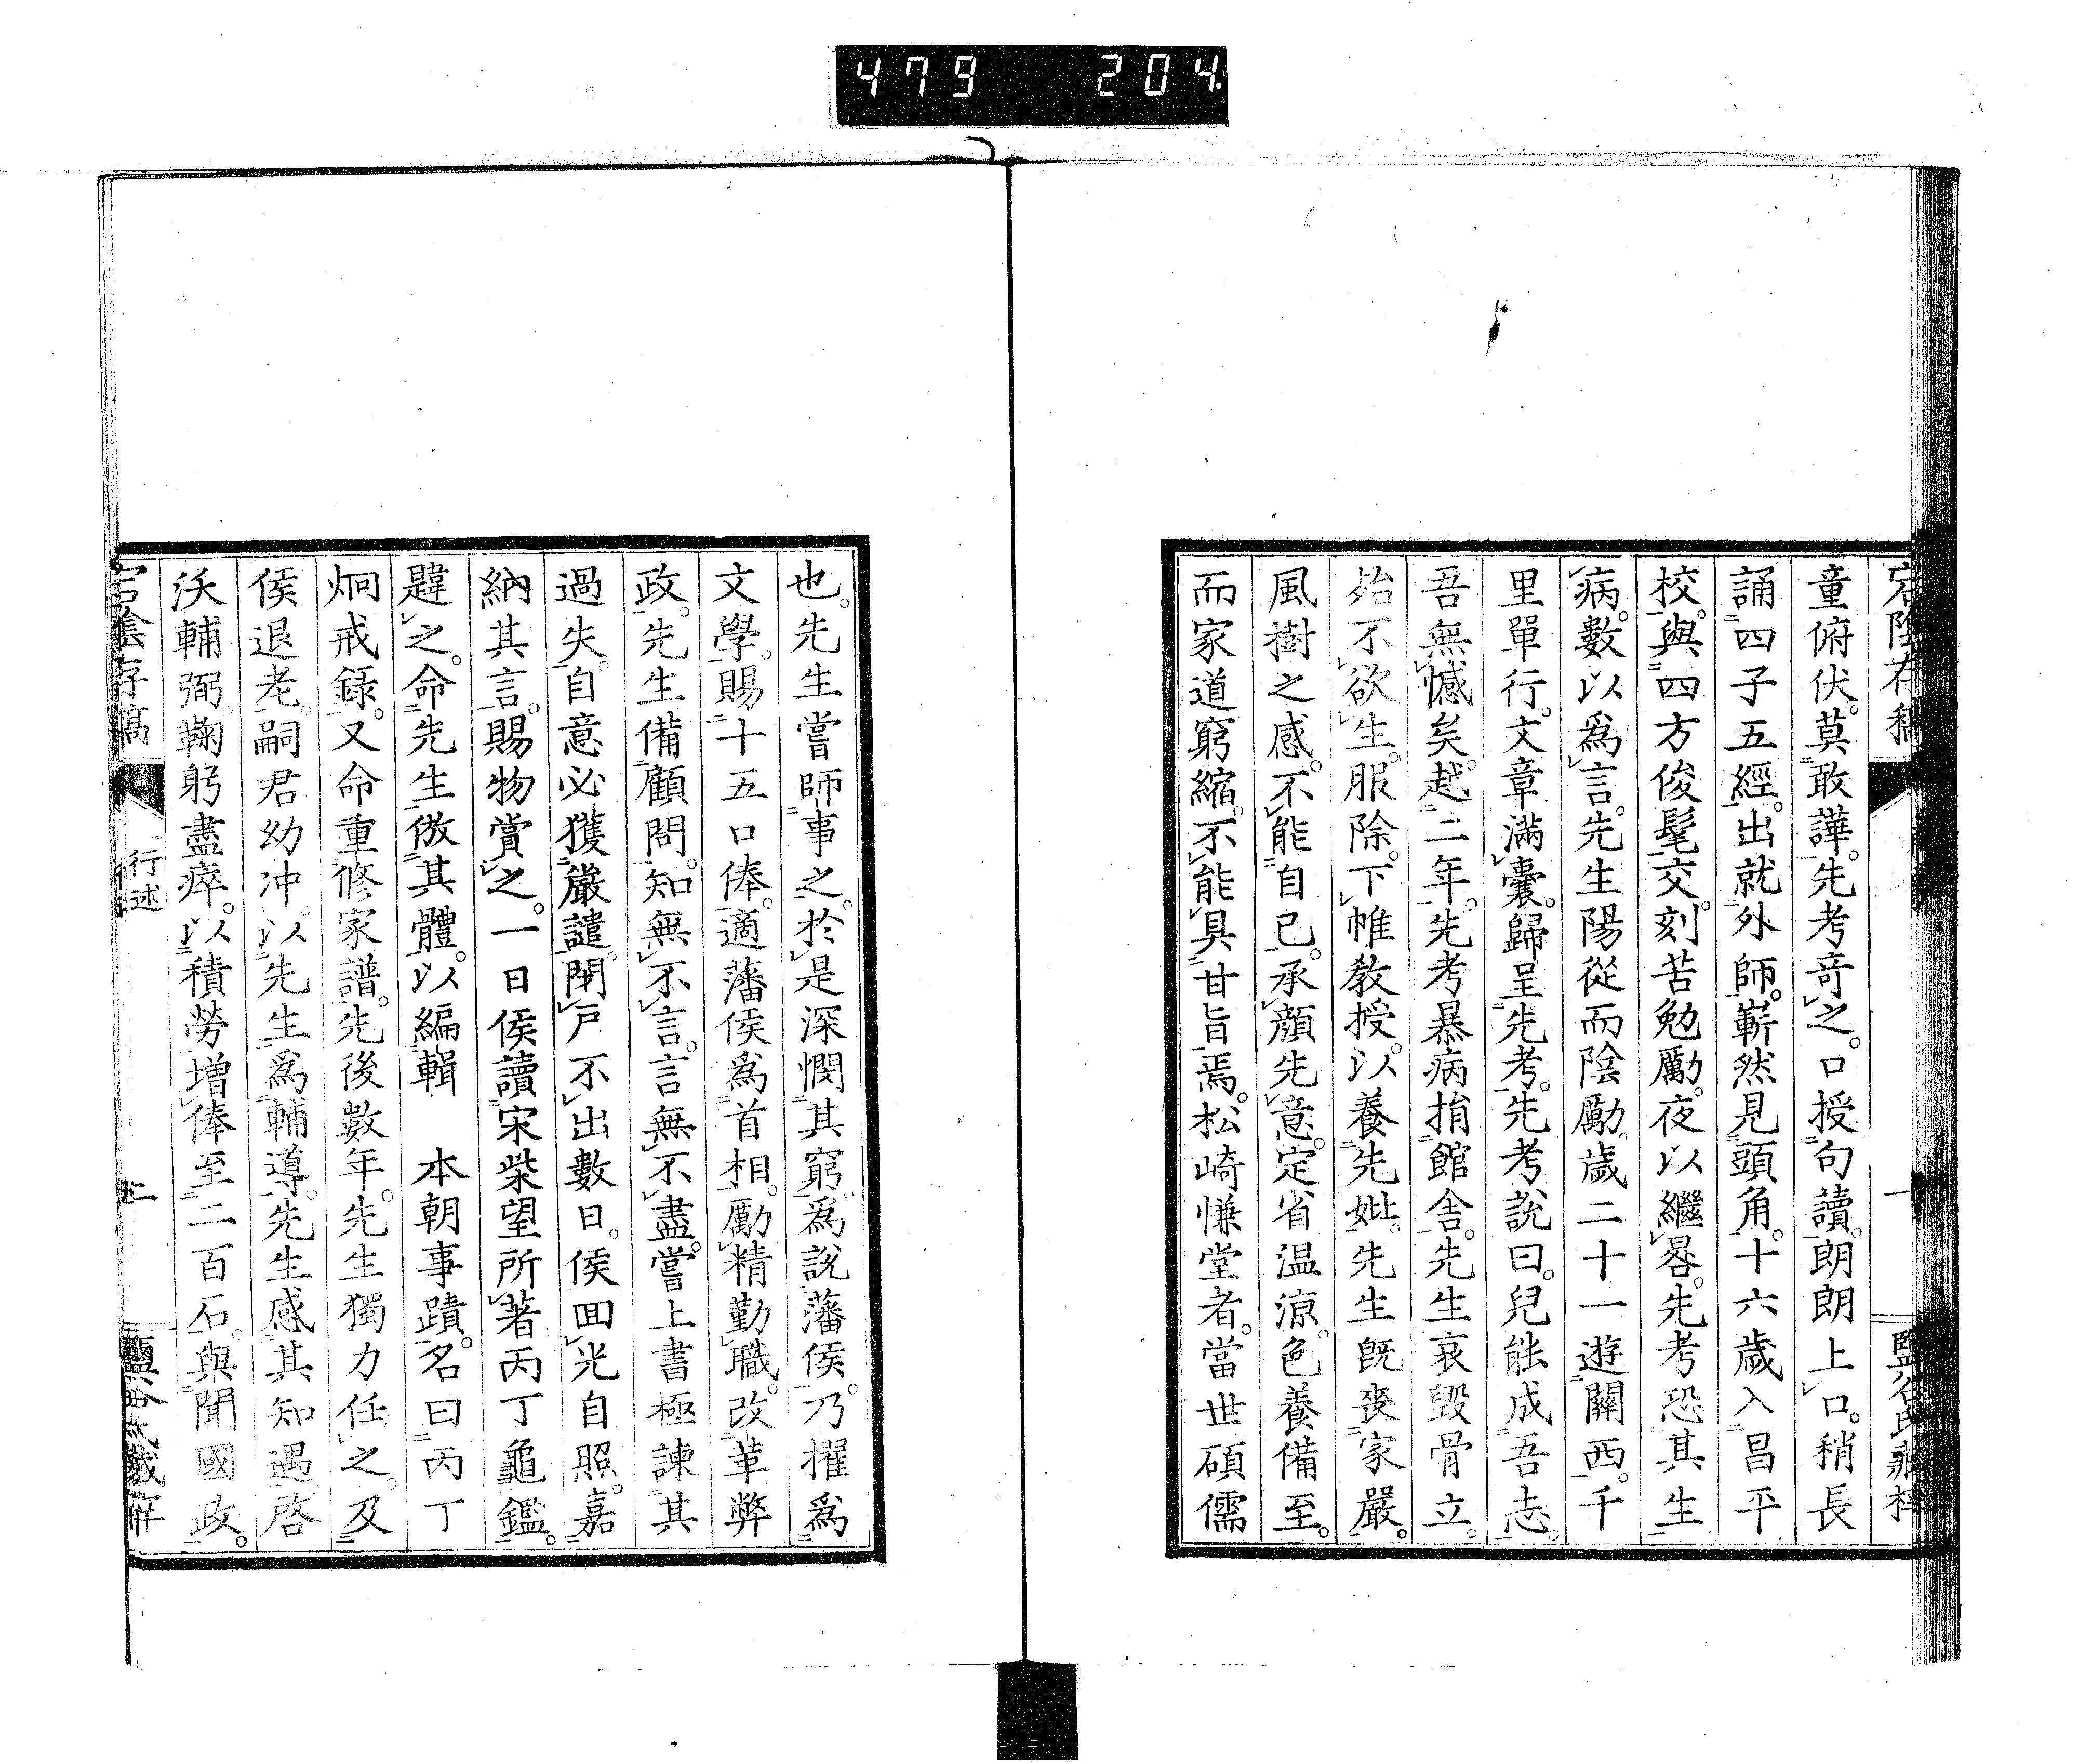 479 204
童俯伏。莫敢譁。先考奇之。口授句讀。朗朗上口。稍長
誦四子五經。出就外師。嶄然見頭角。十六歲入昌平
校。與四方俊髦交。刻苦勉勵。夜以繼晷。先考恐其生
病。數以爲言。先生陽從而陰勵。歲二十一遊關西。千
里單行。文章滿囊。歸呈先考。先考說曰。兒能成吾志。
吾無憾矣。越二年。先考暴病捐館舍。先生哀毀骨立。
殆不欲生。服除。下帷教授。以養先妣。先生既喪家嚴。
風樹之感。不能自已。承顏先意。定省温凊。色養備至。
而家道窮縮。不能具甘旨焉。松崎慊堂者。當世碩儒
也。先生嘗師事之。於是深憫其窮。爲說藩侯。乃擢爲
文學。賜十五口俸。適藩侯爲首相。勵精勤職。改革弊
政。先生備顧問。知無不言。言無不盡。嘗上書極諫其
過失。自意必獲嚴譴。閉戶不出數日。侯回光自照。嘉
納其言。賜物賞之。一日侯讀宋柴望所著丙丁龜鑑。
韙之。命先生倣其體。以編輯　本朝事蹟。名曰丙丁
炯戒錄。又命重修家譜。先後數年。先生獨力任之。及
侯退老。嗣君幼冲。以先生爲輔導。先生感其知遇。啓
沃輔弼。鞠躬盡瘁。以積勞增俸至二百石。與聞國政。
宕陰存稿
行述
二